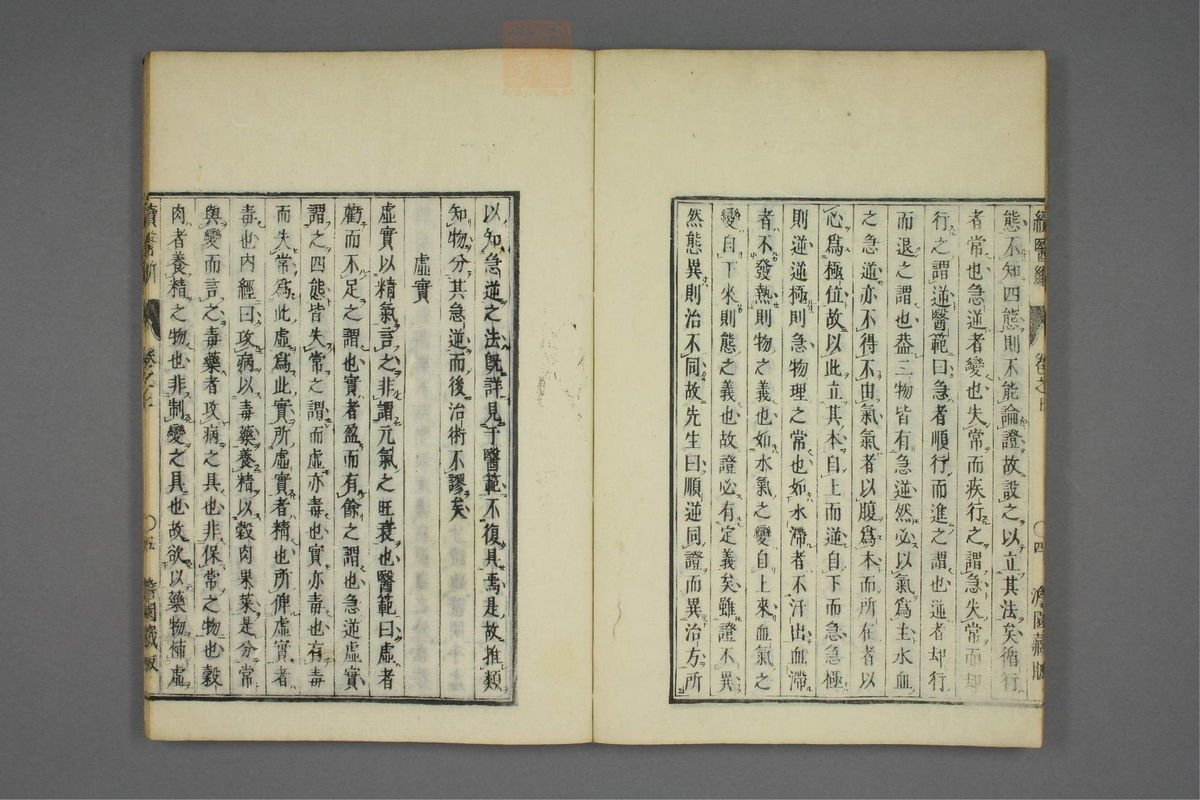 態不知四態則不能論證故設之以立其法矣循行
者常也急逆者變也失常而疾行之謂急失常而却
行之謂逆醫範曰急者順行而進之謂也逆者却行
而退之謂也蓋三物皆有急逆然必以氣爲主水血
之急逆亦不得不由氣氣者以腹爲本而所在者以
心爲極位故以此立其本自上而逆自下而急急極
則逆逆極則急物理之常也如水滯者不汗出血滯
者不發熱則物之義也如水氣之變自上來血氣之
變自下來則態之義也故證必有定義矣雖證不異
然態異則治不同故先生曰順逆同證而異治方所
以知急逆之法既詳見于醫範不復具焉是故推類
知物分其急逆而後治術不謬矣
虛實
虛實以精氣言之非謂元氣之旺衰也醫範曰虛者
虧而不足之謂也實者盈而有餘之謂也急逆虛實
謂之四態皆失常之謂而虛亦毒也實亦毒也有毒
而失常爲此虛爲此實所虛實者精也所俾虛實者
毒也内經曰攻病以毒藥養精以穀肉果菜是分常
與變而言之毒藥者攻病之具也非保常之物也穀
肉者養精之物也非制變之具也故欲以藥物補虛
續醫斷
卷之上
四
五